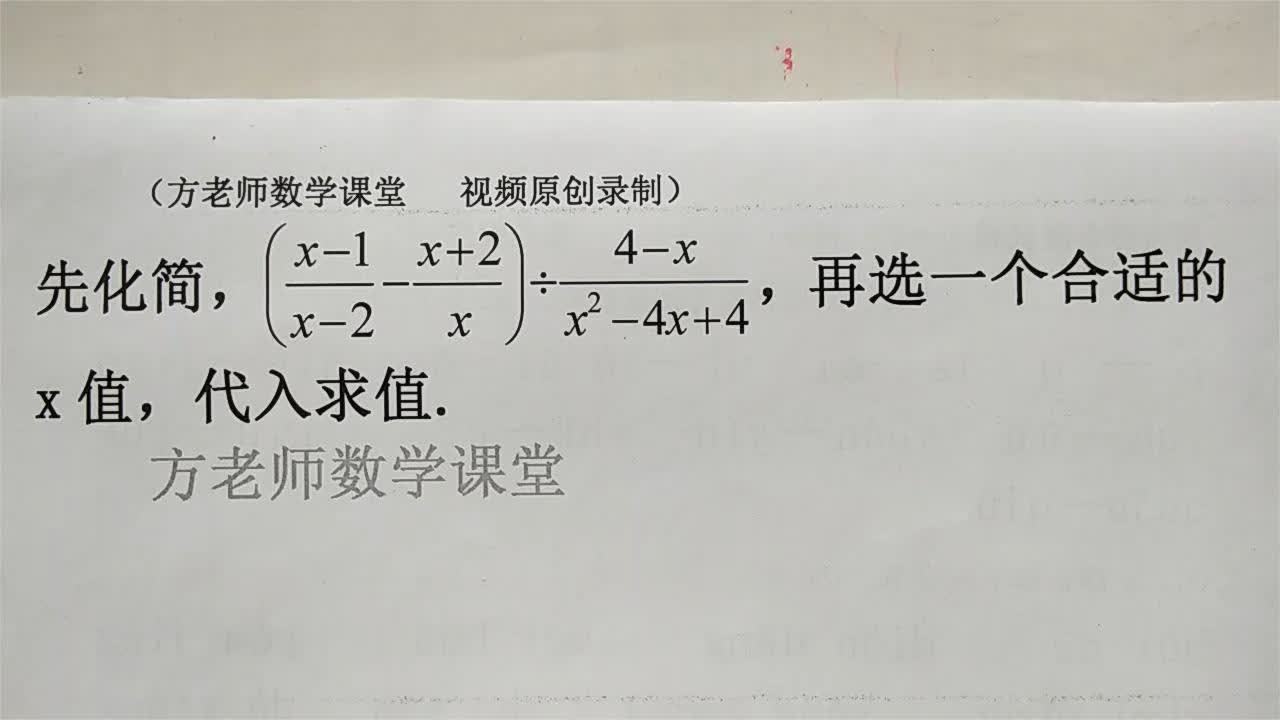 （方老师数学课堂 视频原创录制）
先化简，(\frac{x-1}{x-2}-\frac{x+2}{x})÷\frac{4-x}{x^2-4x+4}，再选一个合适的
x 值，代入求值.
方老师数学课堂